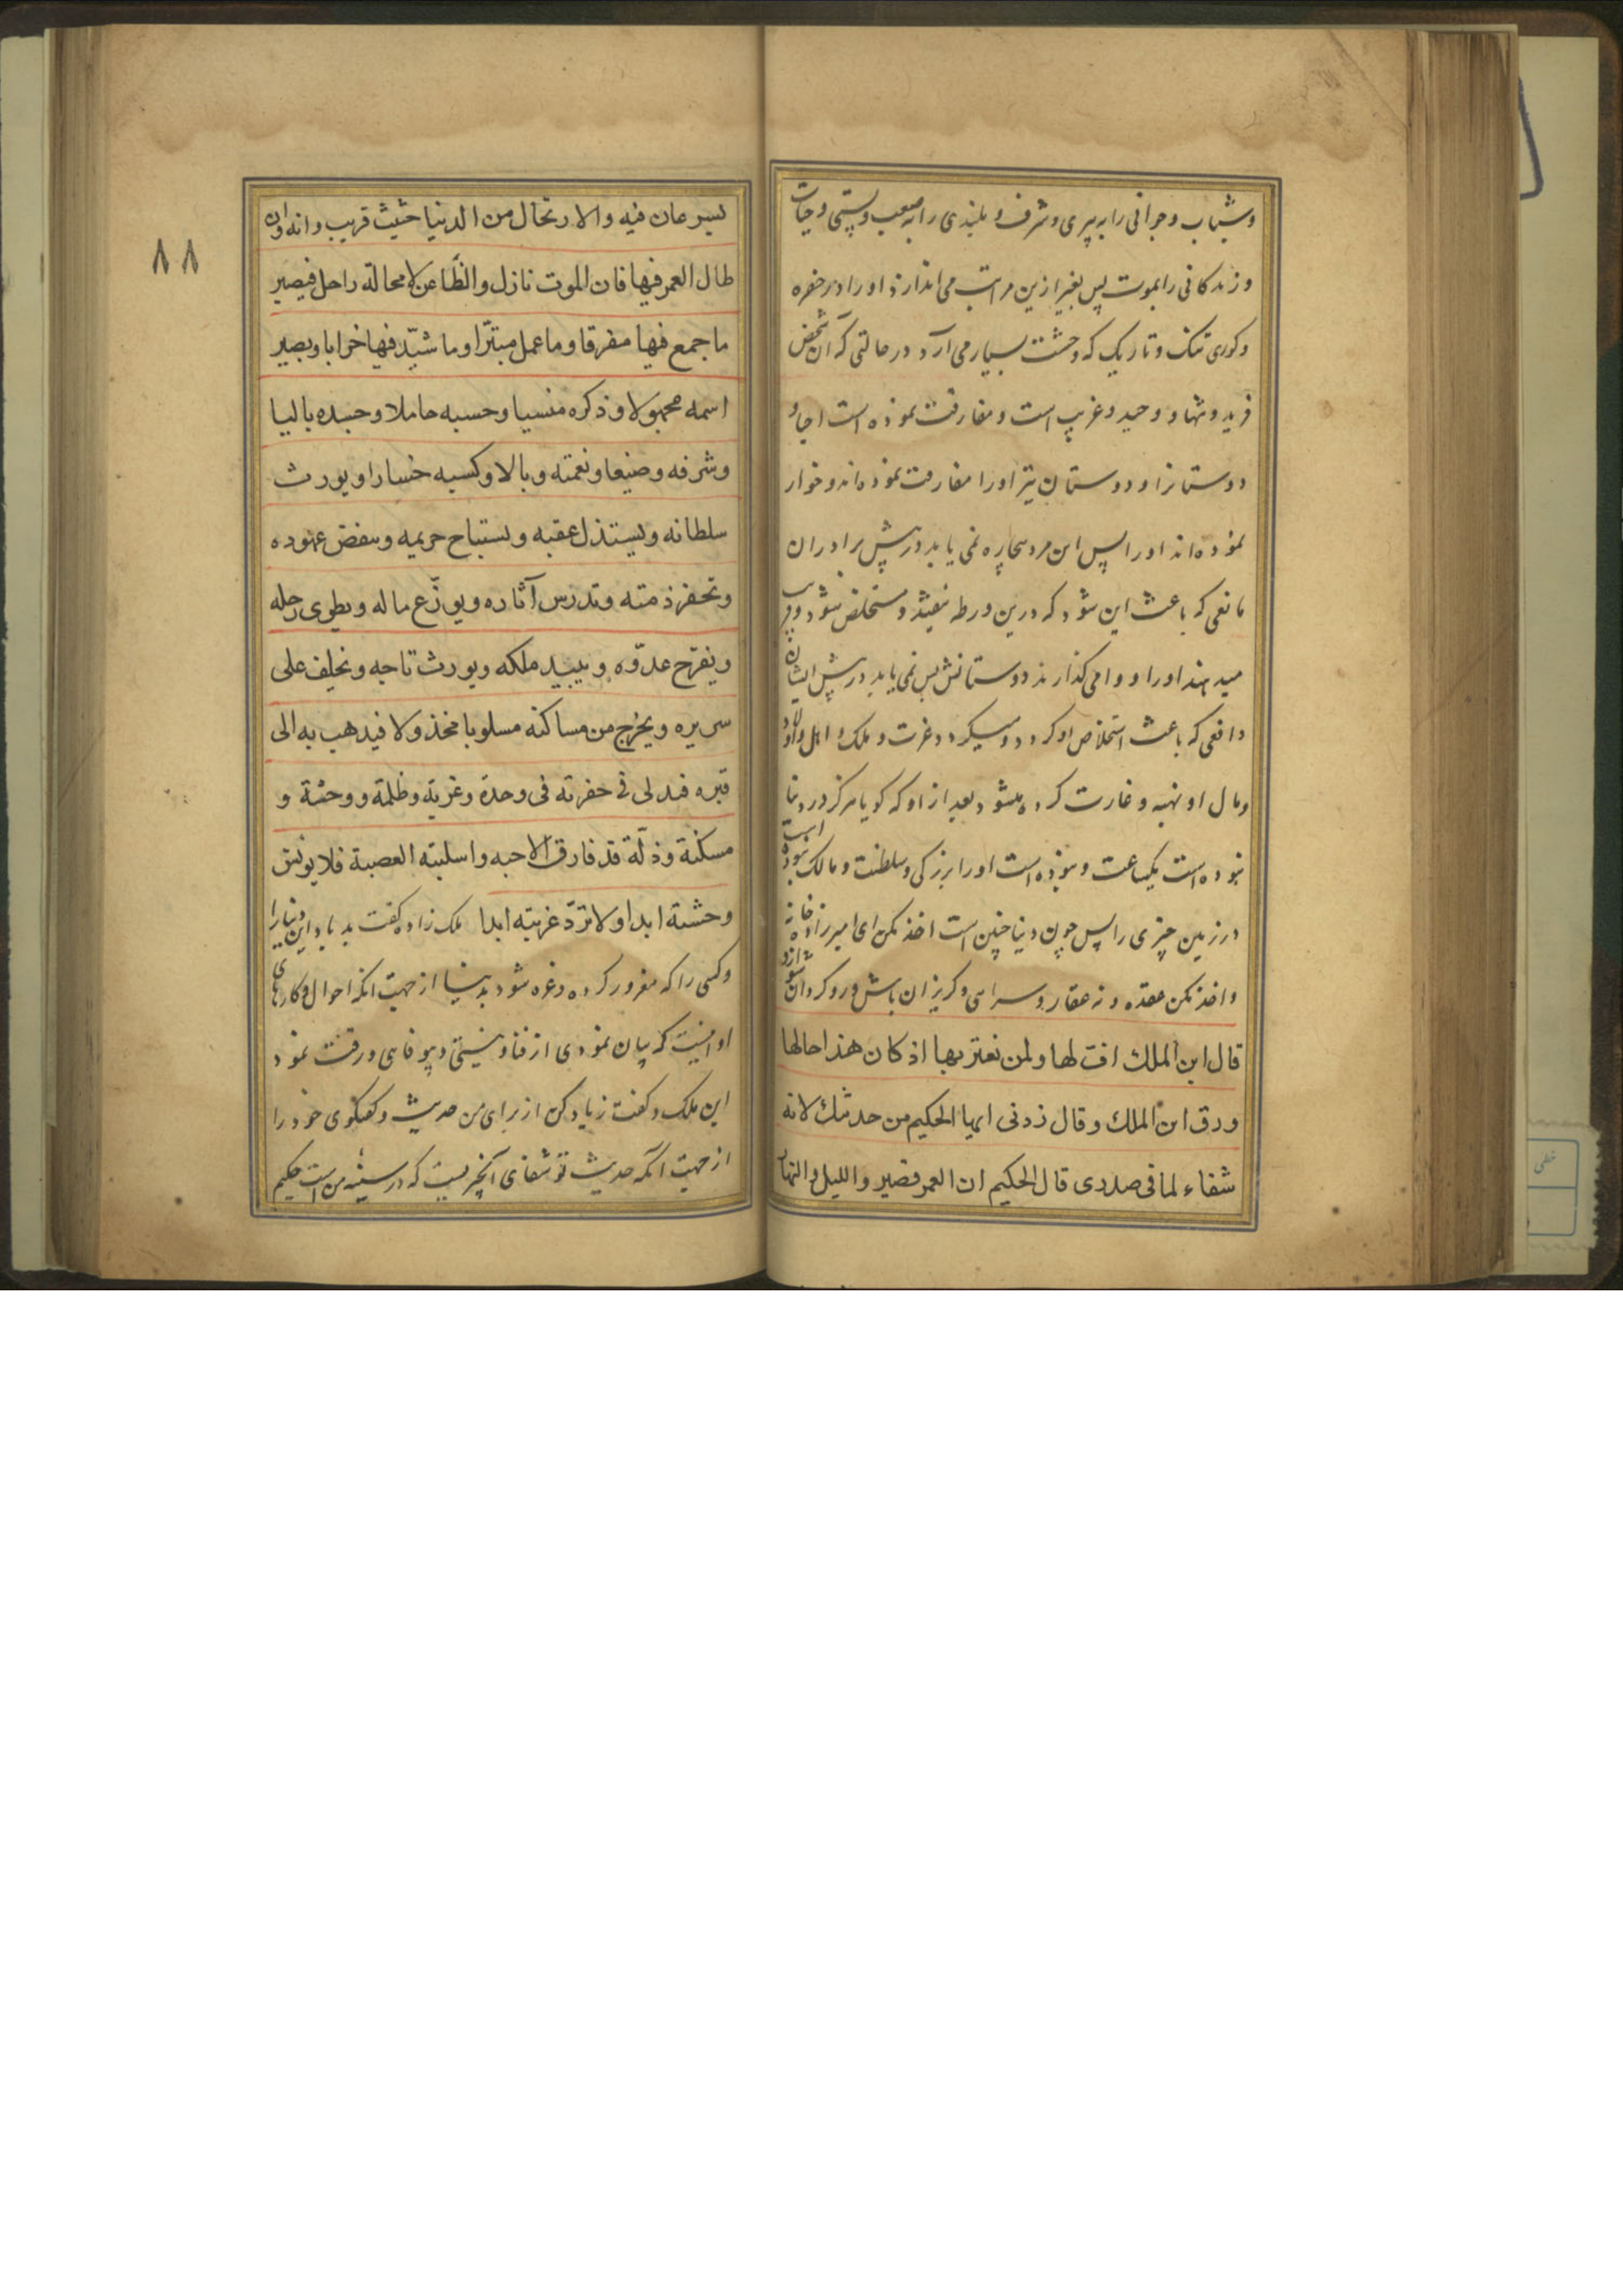 وشباب و جوانی را به پیری و شرف و بلندی را به صعب و پستی و حیات
و زندکانی را بموت پس بغیر ازین مراتب می اندازد او را در حفره
و کوری تنک و تاریک که وحشت بسیار می آرد در حالتی که آن شخص
فرید و تنها و وحید و غریب است و مفارقت نموده است احبا و
دوستانرا و دوستان نیز او را مفارقت نموده اند و خوار
نموده اند او را پس این مرد بیچاره نمی یابد در پیش برادران
مانعی که باعث این شود که درین ورطه نیفتد و مستخلص شود و فریب
میدهند او را و وامی کذارند دوستانش پس نمی یابد در پیش ایشان
دافعی که باعث استخلاص او کردد و میکردد عزت و ملک و اهل و اولاد
و مال او نهبه و غارت کرده میشود بعد از او که کویا هرکز در دنیا
نبوده است یکساعت و نبوده است او را بزرکی و سلطنت و مالک نبوده است
در زمین چیزی را پس چون دنیا چنین است اخذ مکن ای امیرزاده خانه
و اخذ مکن عقده و نه عقار و سرای و کریزان باش و رو کردان شو ازو
قال ابن الملك اف لها ولمن نغتر بها اذ كان هذا حالها
ورق ابن الملك وقال زدنی ایها الحكیم من حدیثك لانه
شفاء لما فی صدری قال الحكیم ان العمر قصیر واللیل والنهار
٨٨
یسرعان فیه والارتحال من الدنیا حثیث قریب وانه وان
طال العمر فیها فان الموت نازل والظّاعن لا محالة راحل فیصیر
ما جمع فیها مفرقا وما عمل متبّرا وما شیّد فیها خرابا ویصیر
اسمه مجهولا وذكره منسیا وحسبه خاملا وجسده بالیا
وشرفه وضیعا ونعمته وبالا وكسبه خسارا ویورث
سلطانه ویستذل عقبه ویستباح حریمه وینقض عهوده
وتخفر ذمته وتدرس آثاره ویوزّع ماله ویطوی رحله
ویفرح عدوّه ویبید ملكه ویورث تاجه ویخلف علی
سریره ویخرج من مساكنه مسلوبا مخذولا فیذهب به الی
قبره فیدلی فی حفرته فی وحدة وغربة وظلمة ووحشة و
مسكنة وذلّة قد فارق الاحبه واسلمته العصبة فلا یونس
وحشته ابدا ولا تردّ غربته ابدا ملک زاده کفت بد باد این دنیا را
و کسی را که مغرور کرده و غره شود بدنیا از جهت انکه احوال و کارهای
او اینست که بیان نمودی از فنا و نیستی و بیوفاهی و رقت نمود
این ملک و کفت زیاد کن از برای من حدیث و کفتکوی خود را
از جهت آنکه حدیث تو شفای آنچیزیست که در سینه من است حکیم
خطی